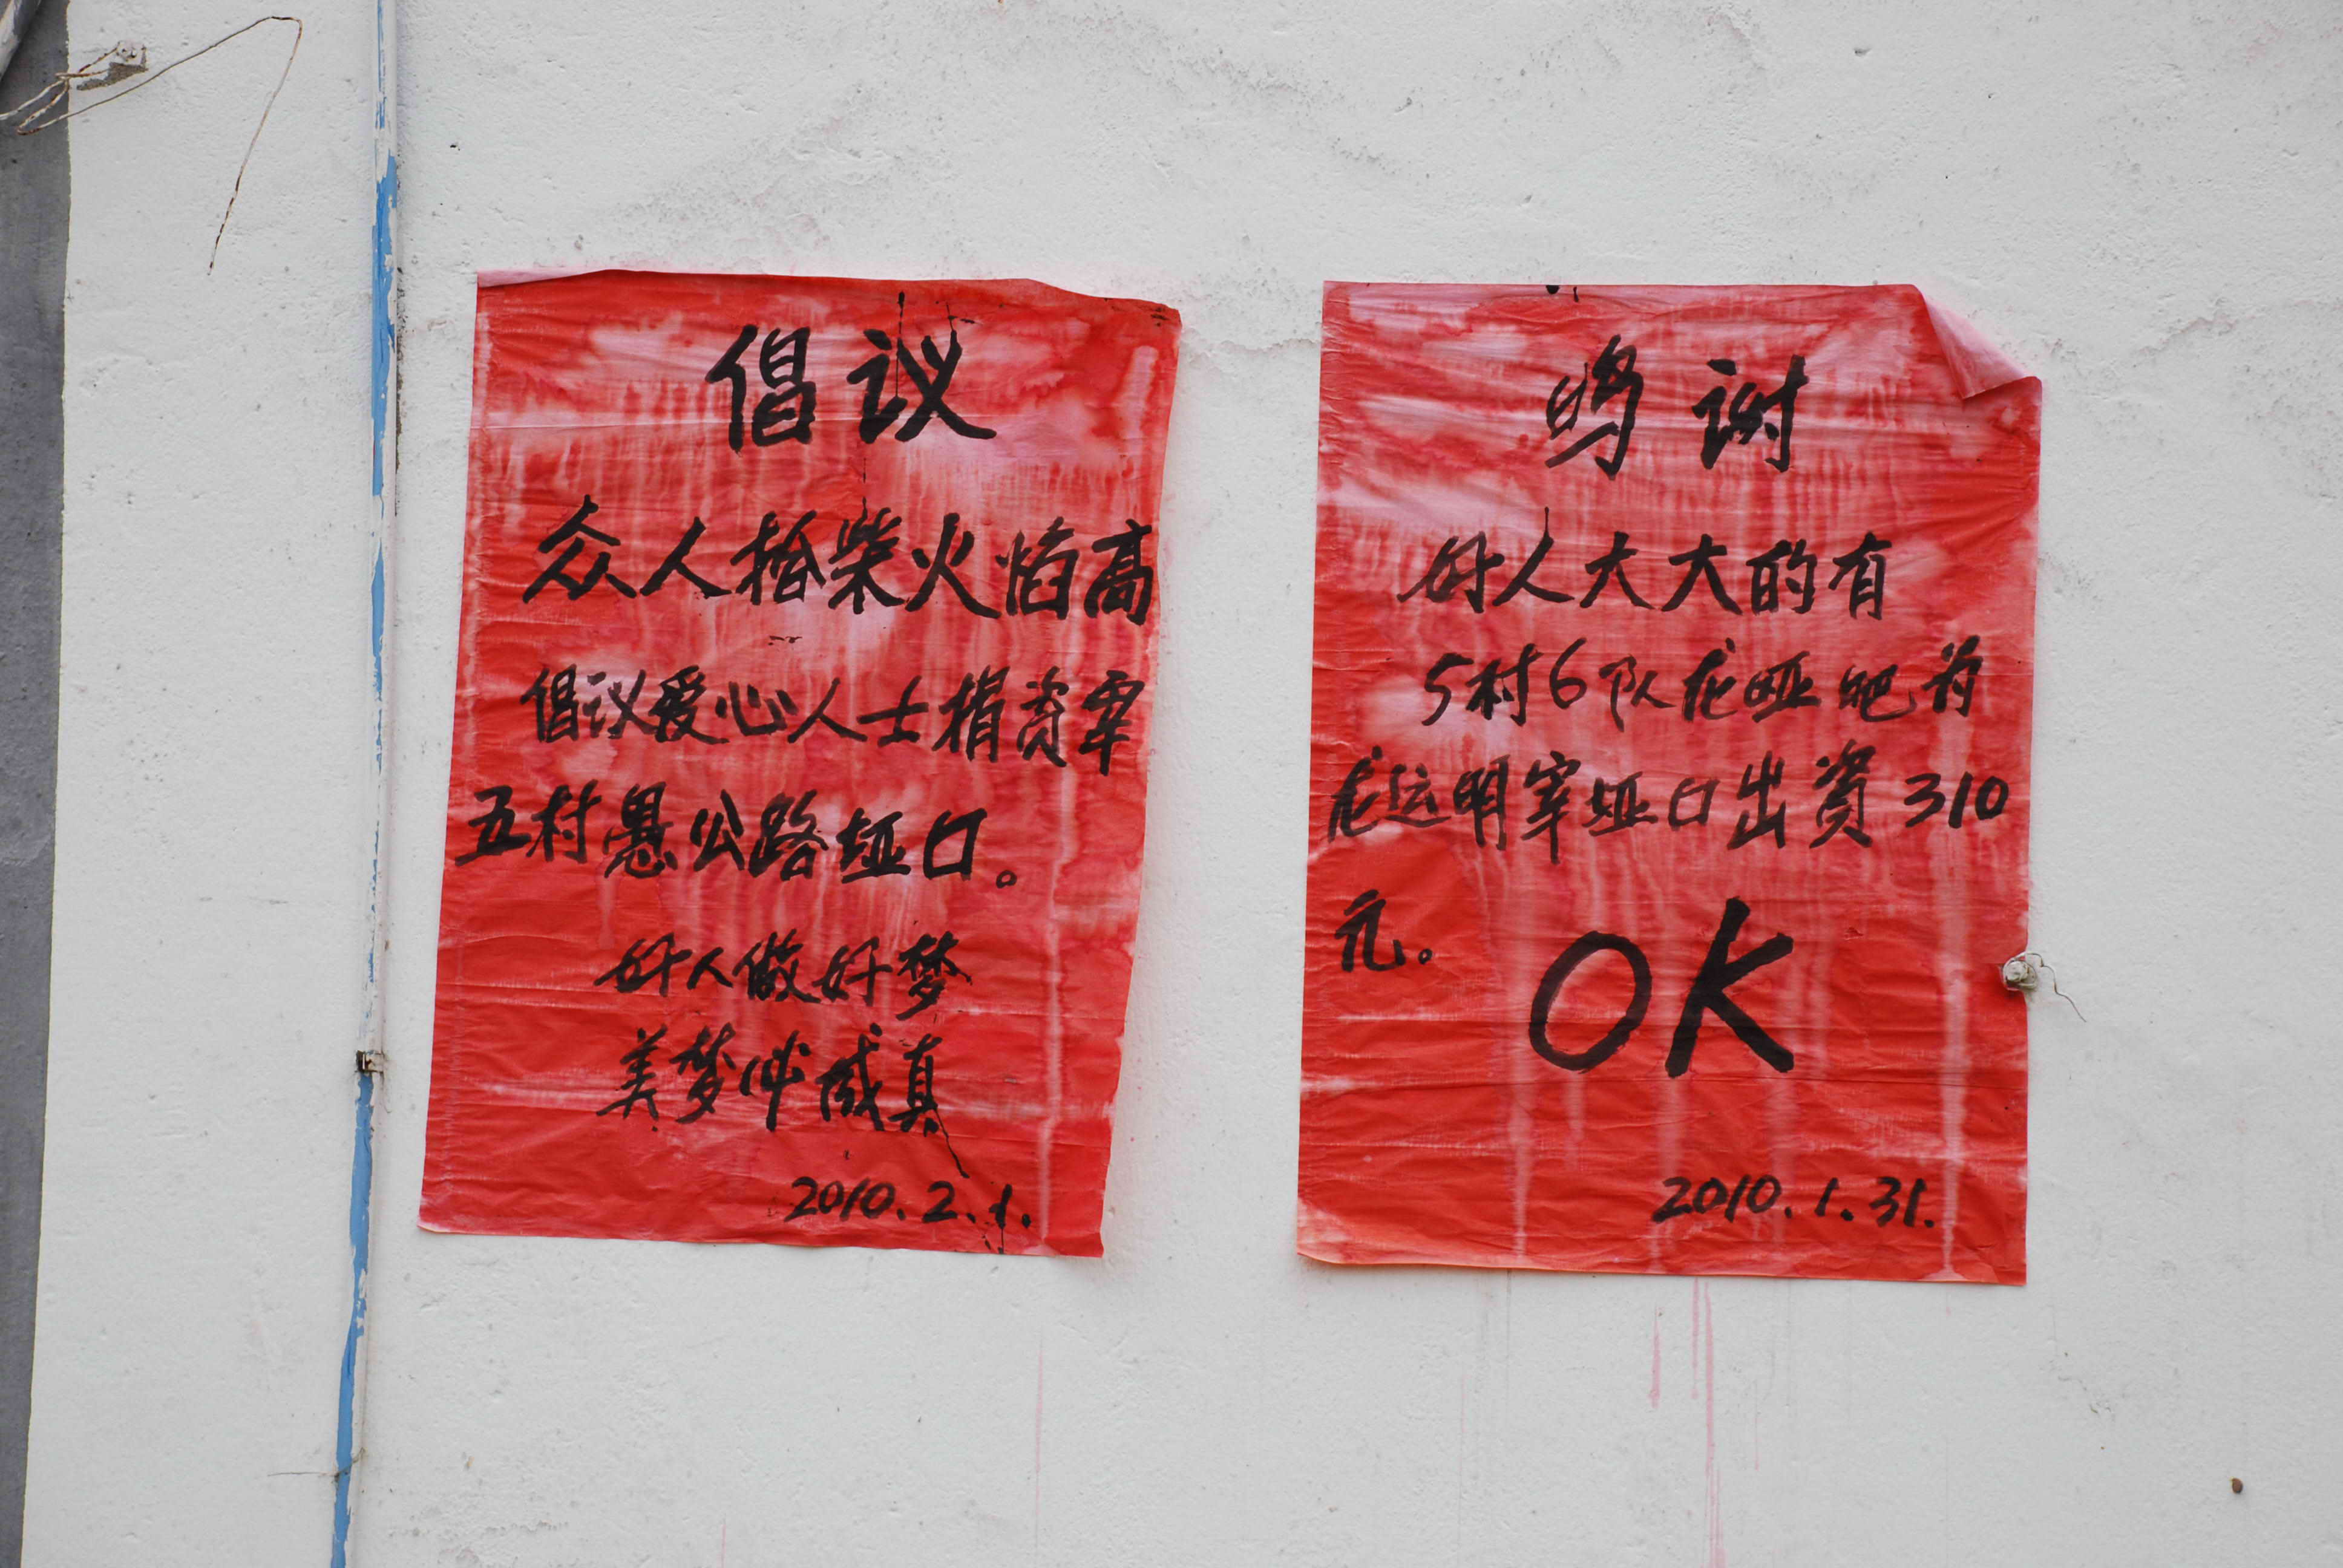 倡议
众人拾柴火焰高
倡议爱心人士捐资宰
五村愚公路垭口。
好人做好梦
美梦必成真
2010.2.1.
鸣谢
好人大大的有
5村6队龙哑吧为
龙运明宰垭口出资310
元。
OK
2010.1.31.